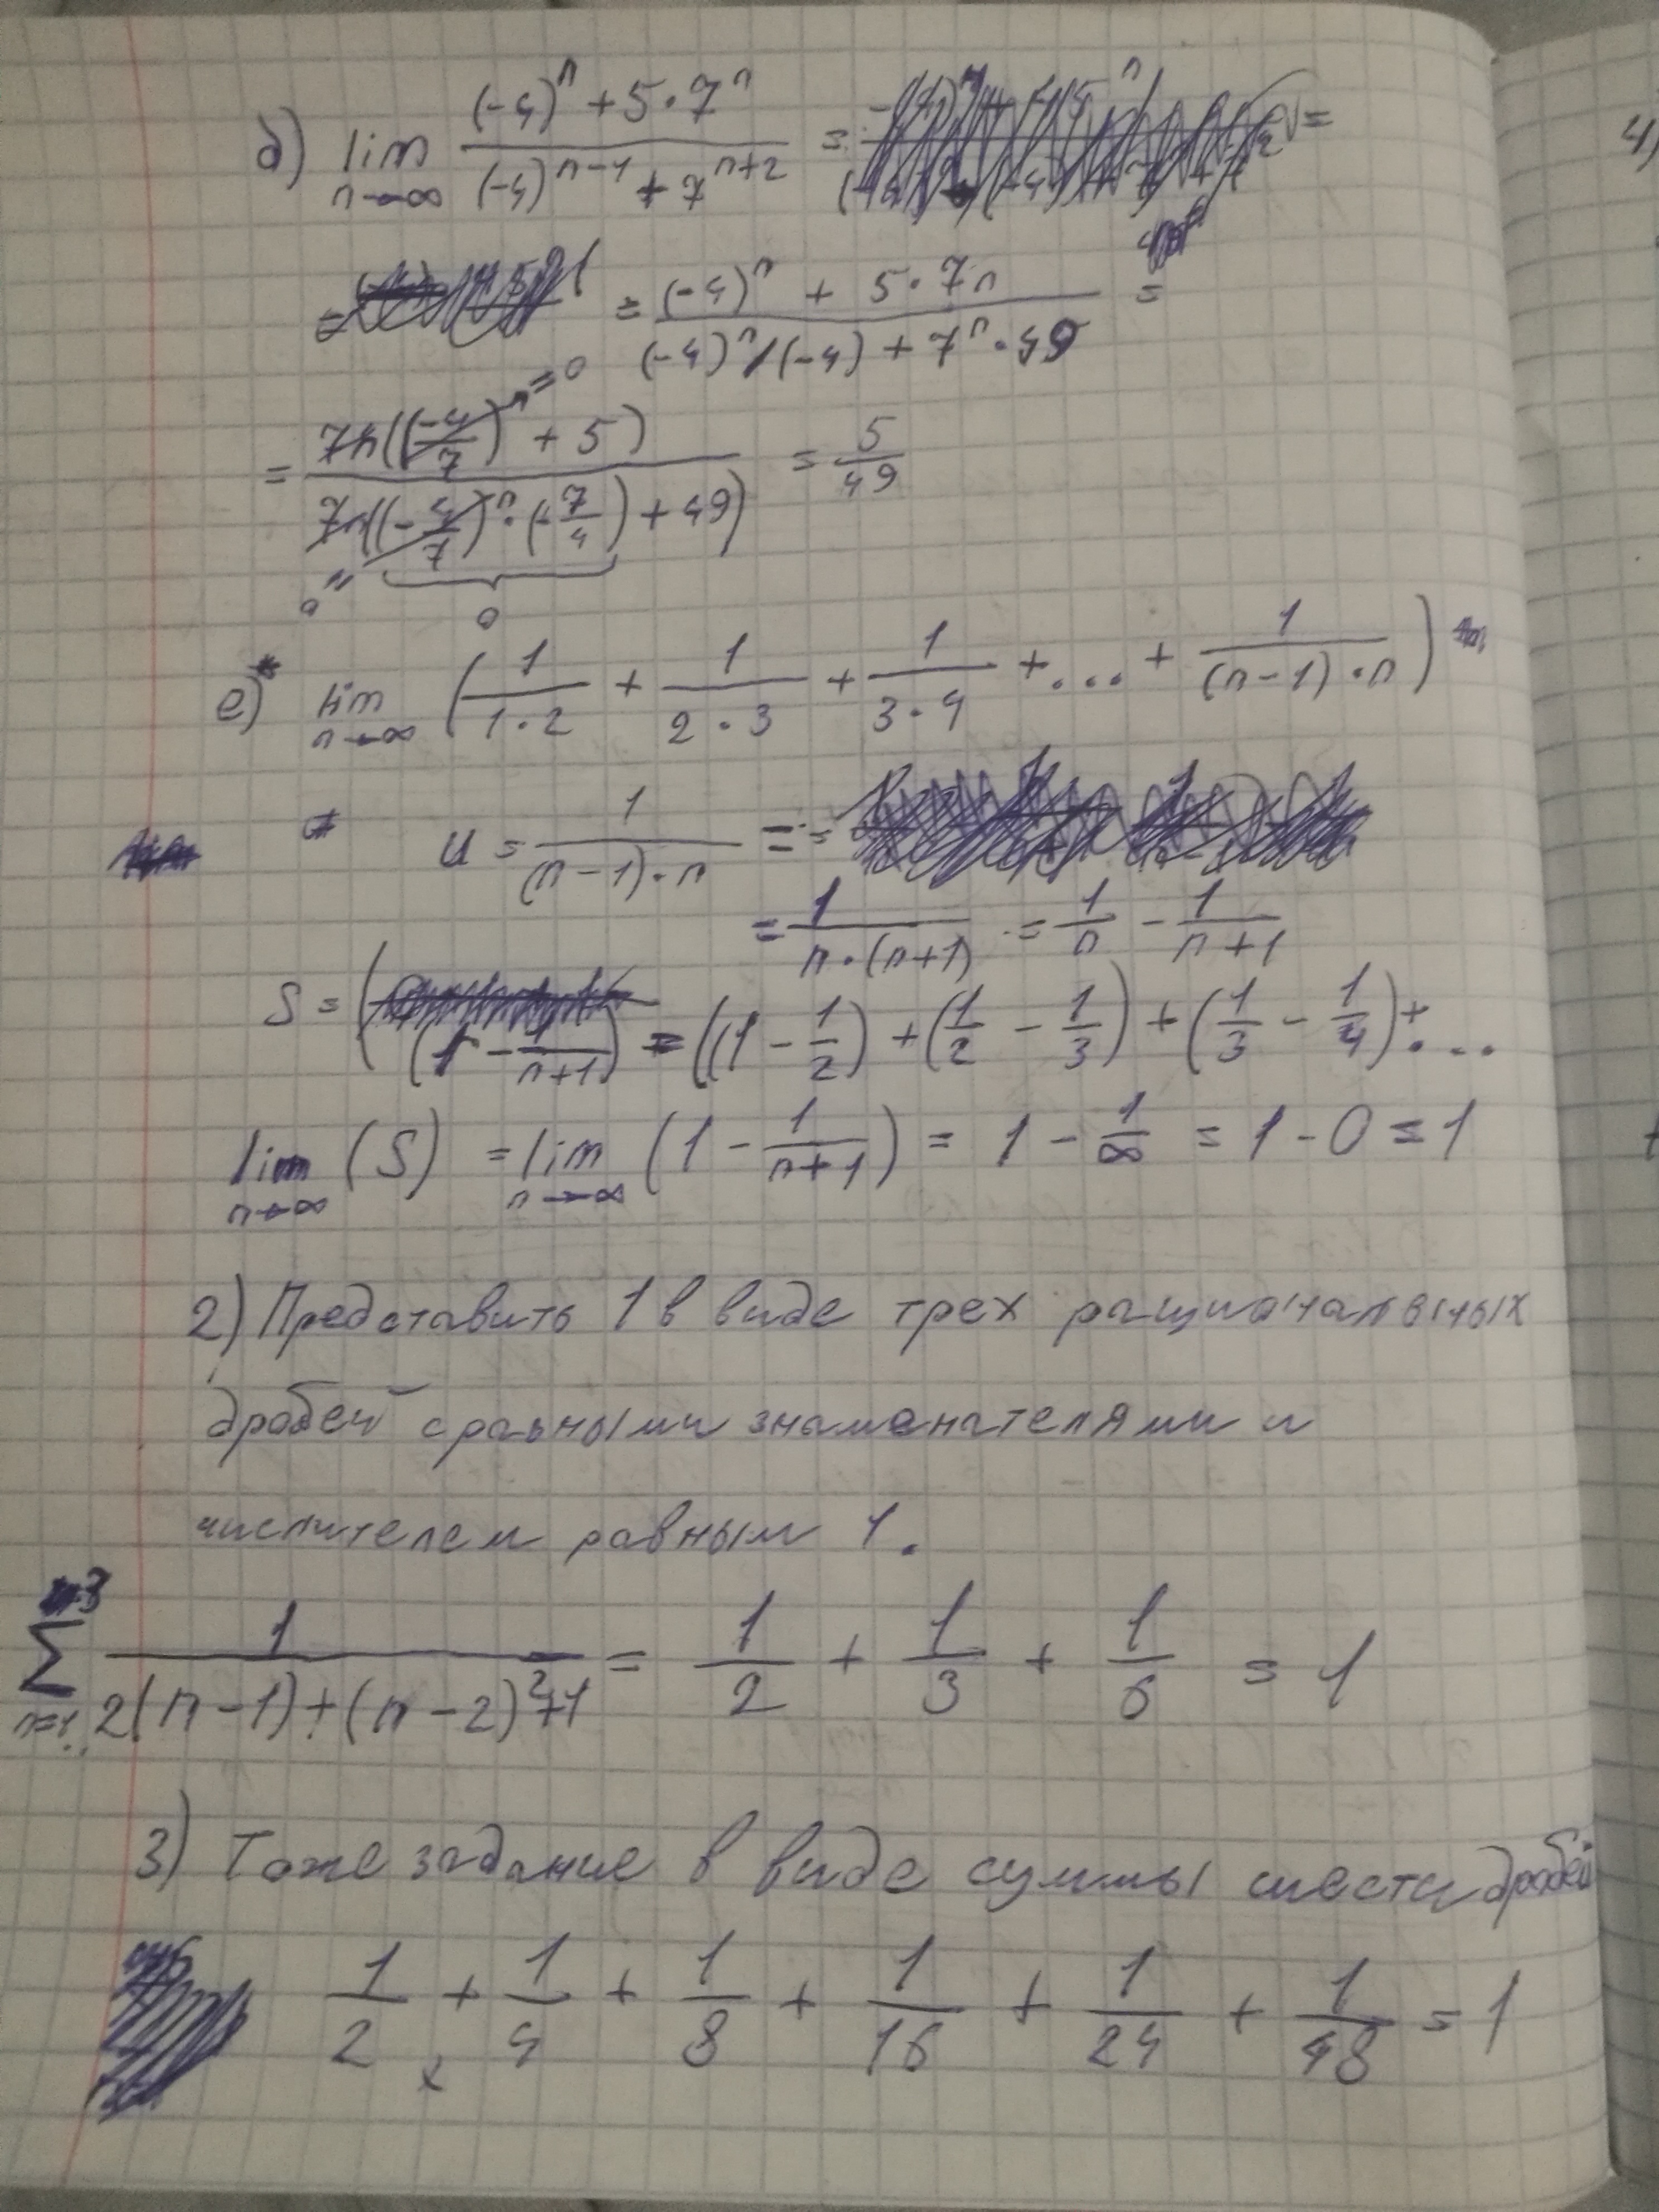 д) lim n→∞ ((-4)^n + 5·7^n) / ((-4)^(n-1) + 7^(n+2)) = =
= = ((-4)^n + 5·7n) / ((-4)^n/(-4) + 7^n·49) =
= 7n((-4/7)^n + 5) / 7n((-4/7)^n·(-7/4) + 49) = 5/49
=0
0" 0
е)* lim n→∞ (1/(1·2) + 1/(2·3) + 1/(3·4) + ... + 1/((n-1)·n))
U = 1/((n-1)·n) = =
= 1/(n·(n+1)) = 1/n - 1/(n+1)
S = (1 - 1/(n+1)) = ((1 - 1/2) + (1/2 - 1/3) + (1/3 - 1/4) + ...
lim n→∞ (S) = lim n→∞ (1 - 1/(n+1)) = 1 - 1/∞ = 1 - 0 = 1
2) Представить 1 в виде трех рациональных
дробей с равными знаменателями и
числителем равным 1.
3 ∑ n=1 1/(2(n-1)+(n-2)²+1) = 1/2 + 1/3 + 1/6 = 1
3) Тоже задание в виде суммы шести дробей
1/2 + 1/4 + 1/8 + 1/16 + 1/24 + 1/48 = 1
4)